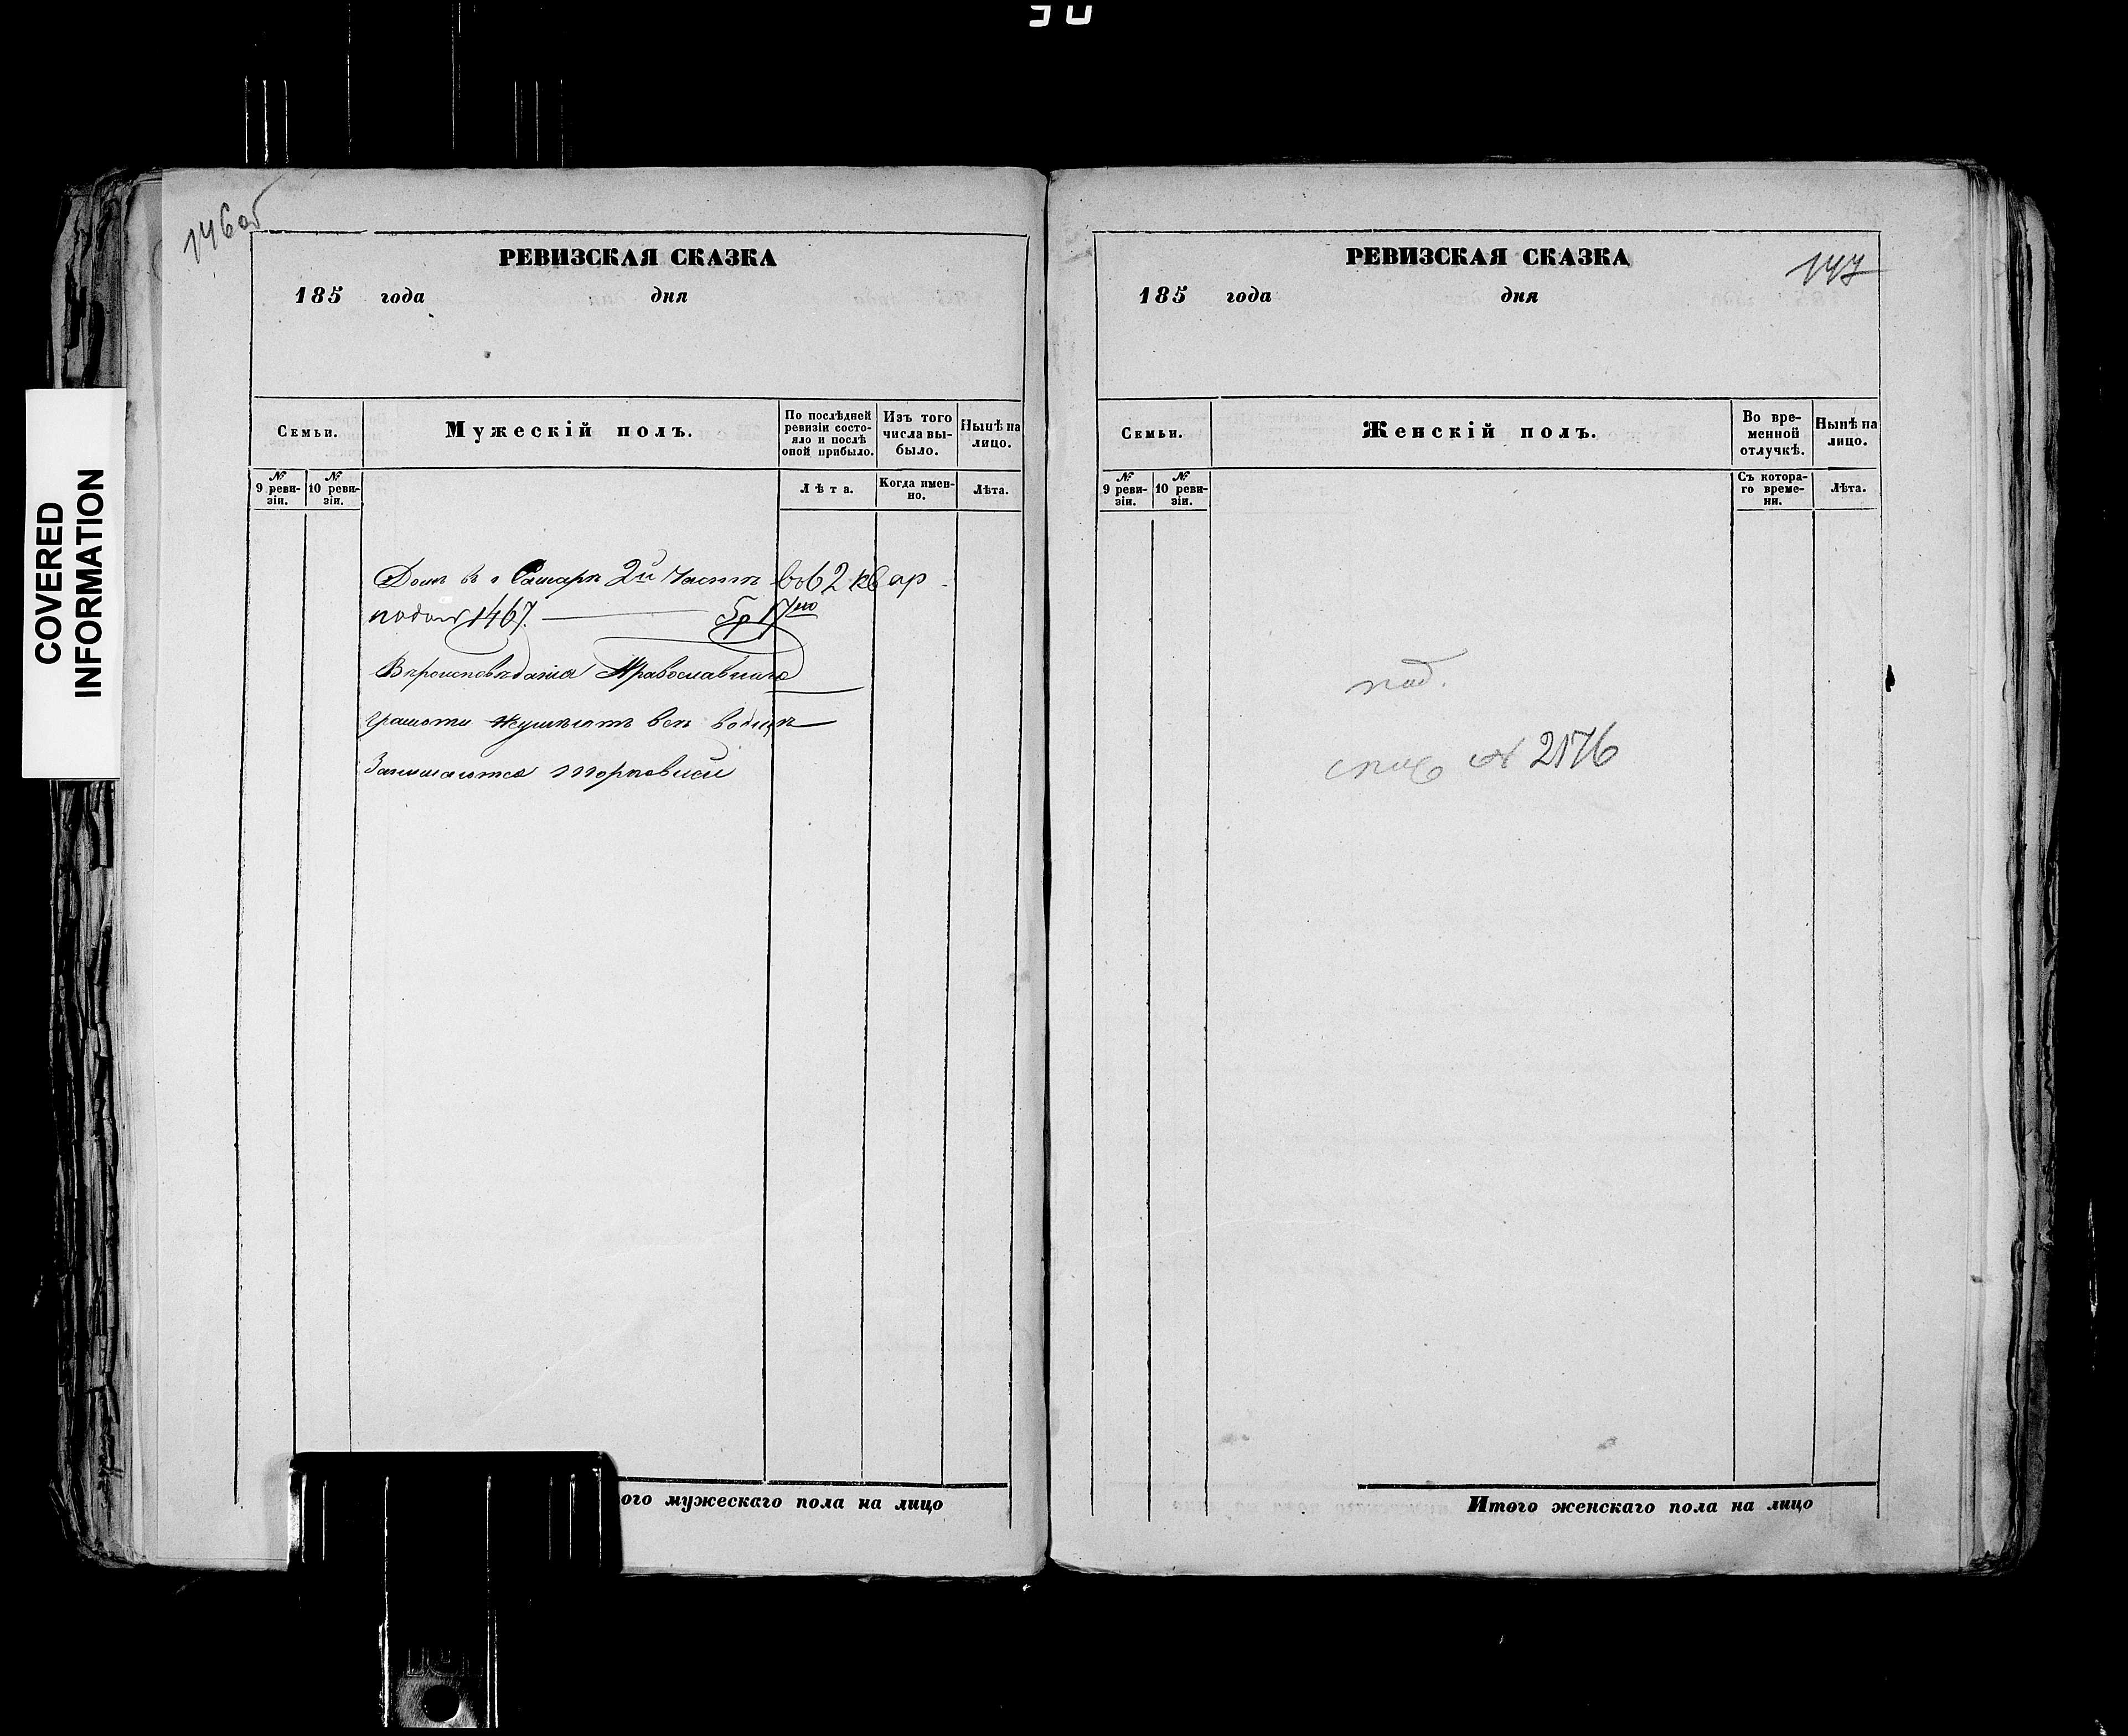 146об
РЕВИЗСКАЯ СКАЗКА
185 года дня
Семьи.
Мужескій полъ.
По послѣдней ревизіи состо-
яло и послѣ
оной прибыло.
Изъ того
числа вы-
было.
Нынѣ на
лицо.
№
9 реви-
зіи.
№
10 реви-
зіи.
Лѣта.
Когда имен-
но.
Лѣта.
Домъ въ г Самарѣ 2й Части во 62 квар
подъ № 1467.
Вѣроисповѣданія Православнаго
грамоти
Занимаются торговлей
ого мужескаго пола на лицо
COVERED
INFORMATION
РЕВИЗСКАЯ СКАЗКА
147
185 года дня
Семьи.
Женскій полъ.
Во вре-
менной
отлучкѣ.
Нынѣ на
лицо.
№
9 реви-
зіи.
№
10 реви-
зіи.
Съ котора-
го време-
ни.
Лѣта.
№ 2176
Итого женскаго пола на лицо